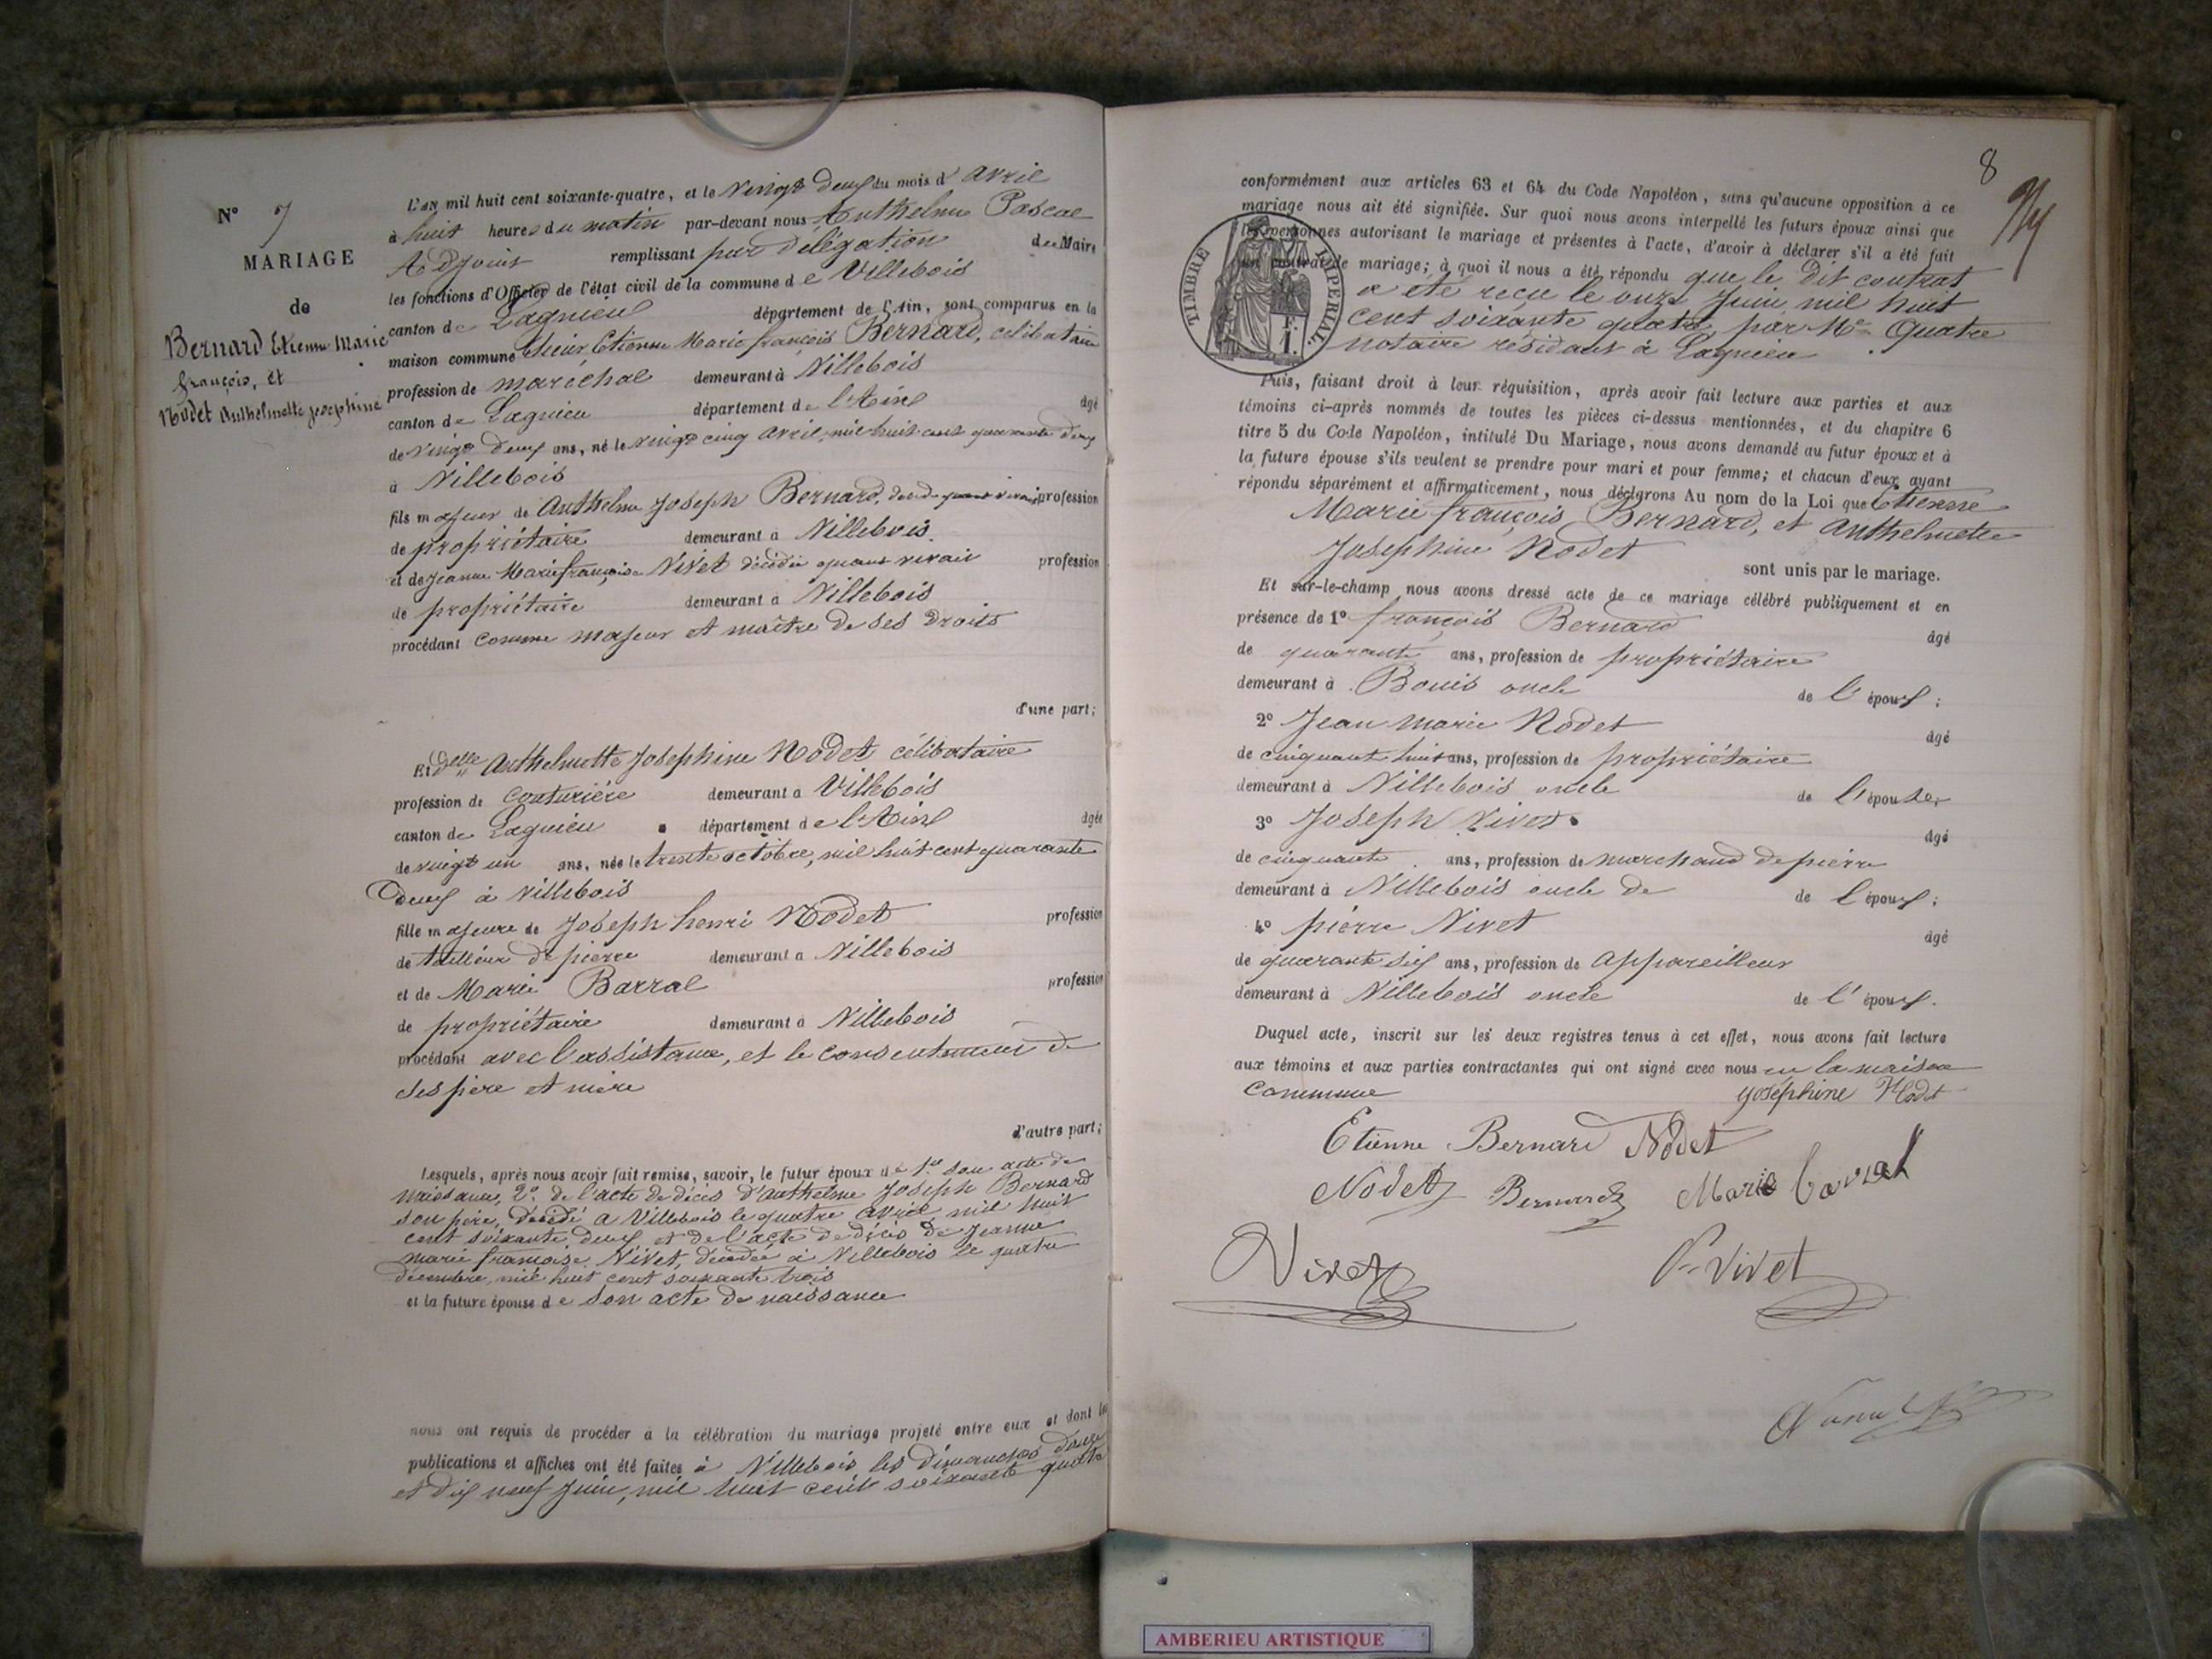 N° 7
MARIAGE
de
Bernard Etienne Marie
françois, et
Nodet Anthelmette josephine
L'an mil huit cent soixante-quatre, et le vingt deux du mois d' avril
à huit heures du matin par-devant nous Anthelme Pascal
Adjoint remplissant par délégation du Maire
les fonctions d'Officier de l'état civil de la commune de Villebois
canton de Lagnieu département de l'Ain, sont comparus en la
maison commune Sieur Etienne Marie françois Bernard, célibataire
profession de maréchal demeurant à Villebois
canton de Lagnieu département de l'Ain âgé
de vingt deux ans, né le vingt cinq avril, mil huit cent quarante deux
à Villebois
fils majeur de Anthelme Joseph Bernard, profession
de propriétaire demeurant à Villebois.
et de Jeanne Marie françoise Vivet décédée quant vivait profession
de propriétaire demeurant à Villebois
procédant comme majeur et maître de ses droits
d'une part;
Et delle Anthelmette Josephine Nodet célibataire
profession de couturière demeurant à Villebois
canton de Lagnieu département de l'Ain âgée
de vingt un ans, née le trente octobre, mil huit cent quarante
deux à Villebois
fille majeure de Joseph henri Nodet profession
de tailleur de pierre demeurant à Villebois
et de Marie Barral profession
de propriétaire demeurant à Villebois
procédant avec l'assistance, et le consentement de
ses père et mère
d'autre part;
Lesquels, après nous avoir fait remise, savoir, le futur époux de 1° son acte de
naissance, 2° de l'acte de décès d'Anthelme Joseph Bernard
son père, décédé à Villebois le quatre avril mil huit
cent soixante deux et de l'acte de décès de Jeanne
marie françoise Vivet, décédée à Villebois le quatre
décembre, mil huit cent soixante trois
et la future épouse de son acte de naissance
nous ont requis de procéder à la célébration du mariage projeté entre eux et dont les
publications et affiches ont été faites à Villebois les dimanches douze
et dix neuf Juin, mil huit cent soixante quatre
8
conformément aux articles 63 et 64 du Code Napoléon, sans qu'aucune opposition à ce
mariage nous ait été signifiée. Sur quoi nous avons interpellé les futurs époux ainsi que
les personnes autorisant le mariage et présentes à l'acte, d'avoir à déclarer s'il a été fait
un contrat de mariage; à quoi il nous a été répondu que le dit contrat
a été reçu le onze Juin, mil huit
cent soixante quatre, par Me Quatre
notaire résidant à Lagnieu
TIMBRE IMPERIAL
1 F.
Puis, faisant droit à leur réquisition, après avoir fait lecture aux parties et aux
témoins ci-après nommés de toutes les pièces ci-dessus mentionnées, et du chapitre 6
titre 5 du Code Napoléon, intitulé Du Mariage, nous avons demandé au futur époux et à
la future épouse s'ils veulent se prendre pour mari et pour femme; et chacun d'eux ayant
répondu séparément et affirmativement, nous déclarons Au nom de la Loi que Etienne
Marie françois Bernard, et Anthelmette
Josephine Nodet
sont unis par le mariage.
Et sur-le-champ nous avons dressé acte de ce mariage célébré publiquement et en
présence de 1° françois Bernard âgé
de quarante ans, profession de propriétaire
demeurant à Bouis oncle de l'époux;
2° Jean marie Nodet âgé
de cinquante huit ans, profession de propriétaire
demeurant à Villebois oncle de l'épouse
3° Joseph Vivet âgé
de cinquante ans, profession de marchand de pierre
demeurant à Villebois oncle de de l'époux;
4° pierre Vivet âgé
de quarante six ans, profession de Appareilleur
demeurant à Villebois oncle de l'époux.
Duquel acte, inscrit sur les deux registres tenus à cet effet, nous avons fait lecture
aux témoins et aux parties contractantes qui ont signé avec nous en la maison
commune
Joséphine Nodet
Etienne Bernard Nodet
Nodet Bernard Marie barral
Vivet P. Vivet
AMBERIEU ARTISTIQUE